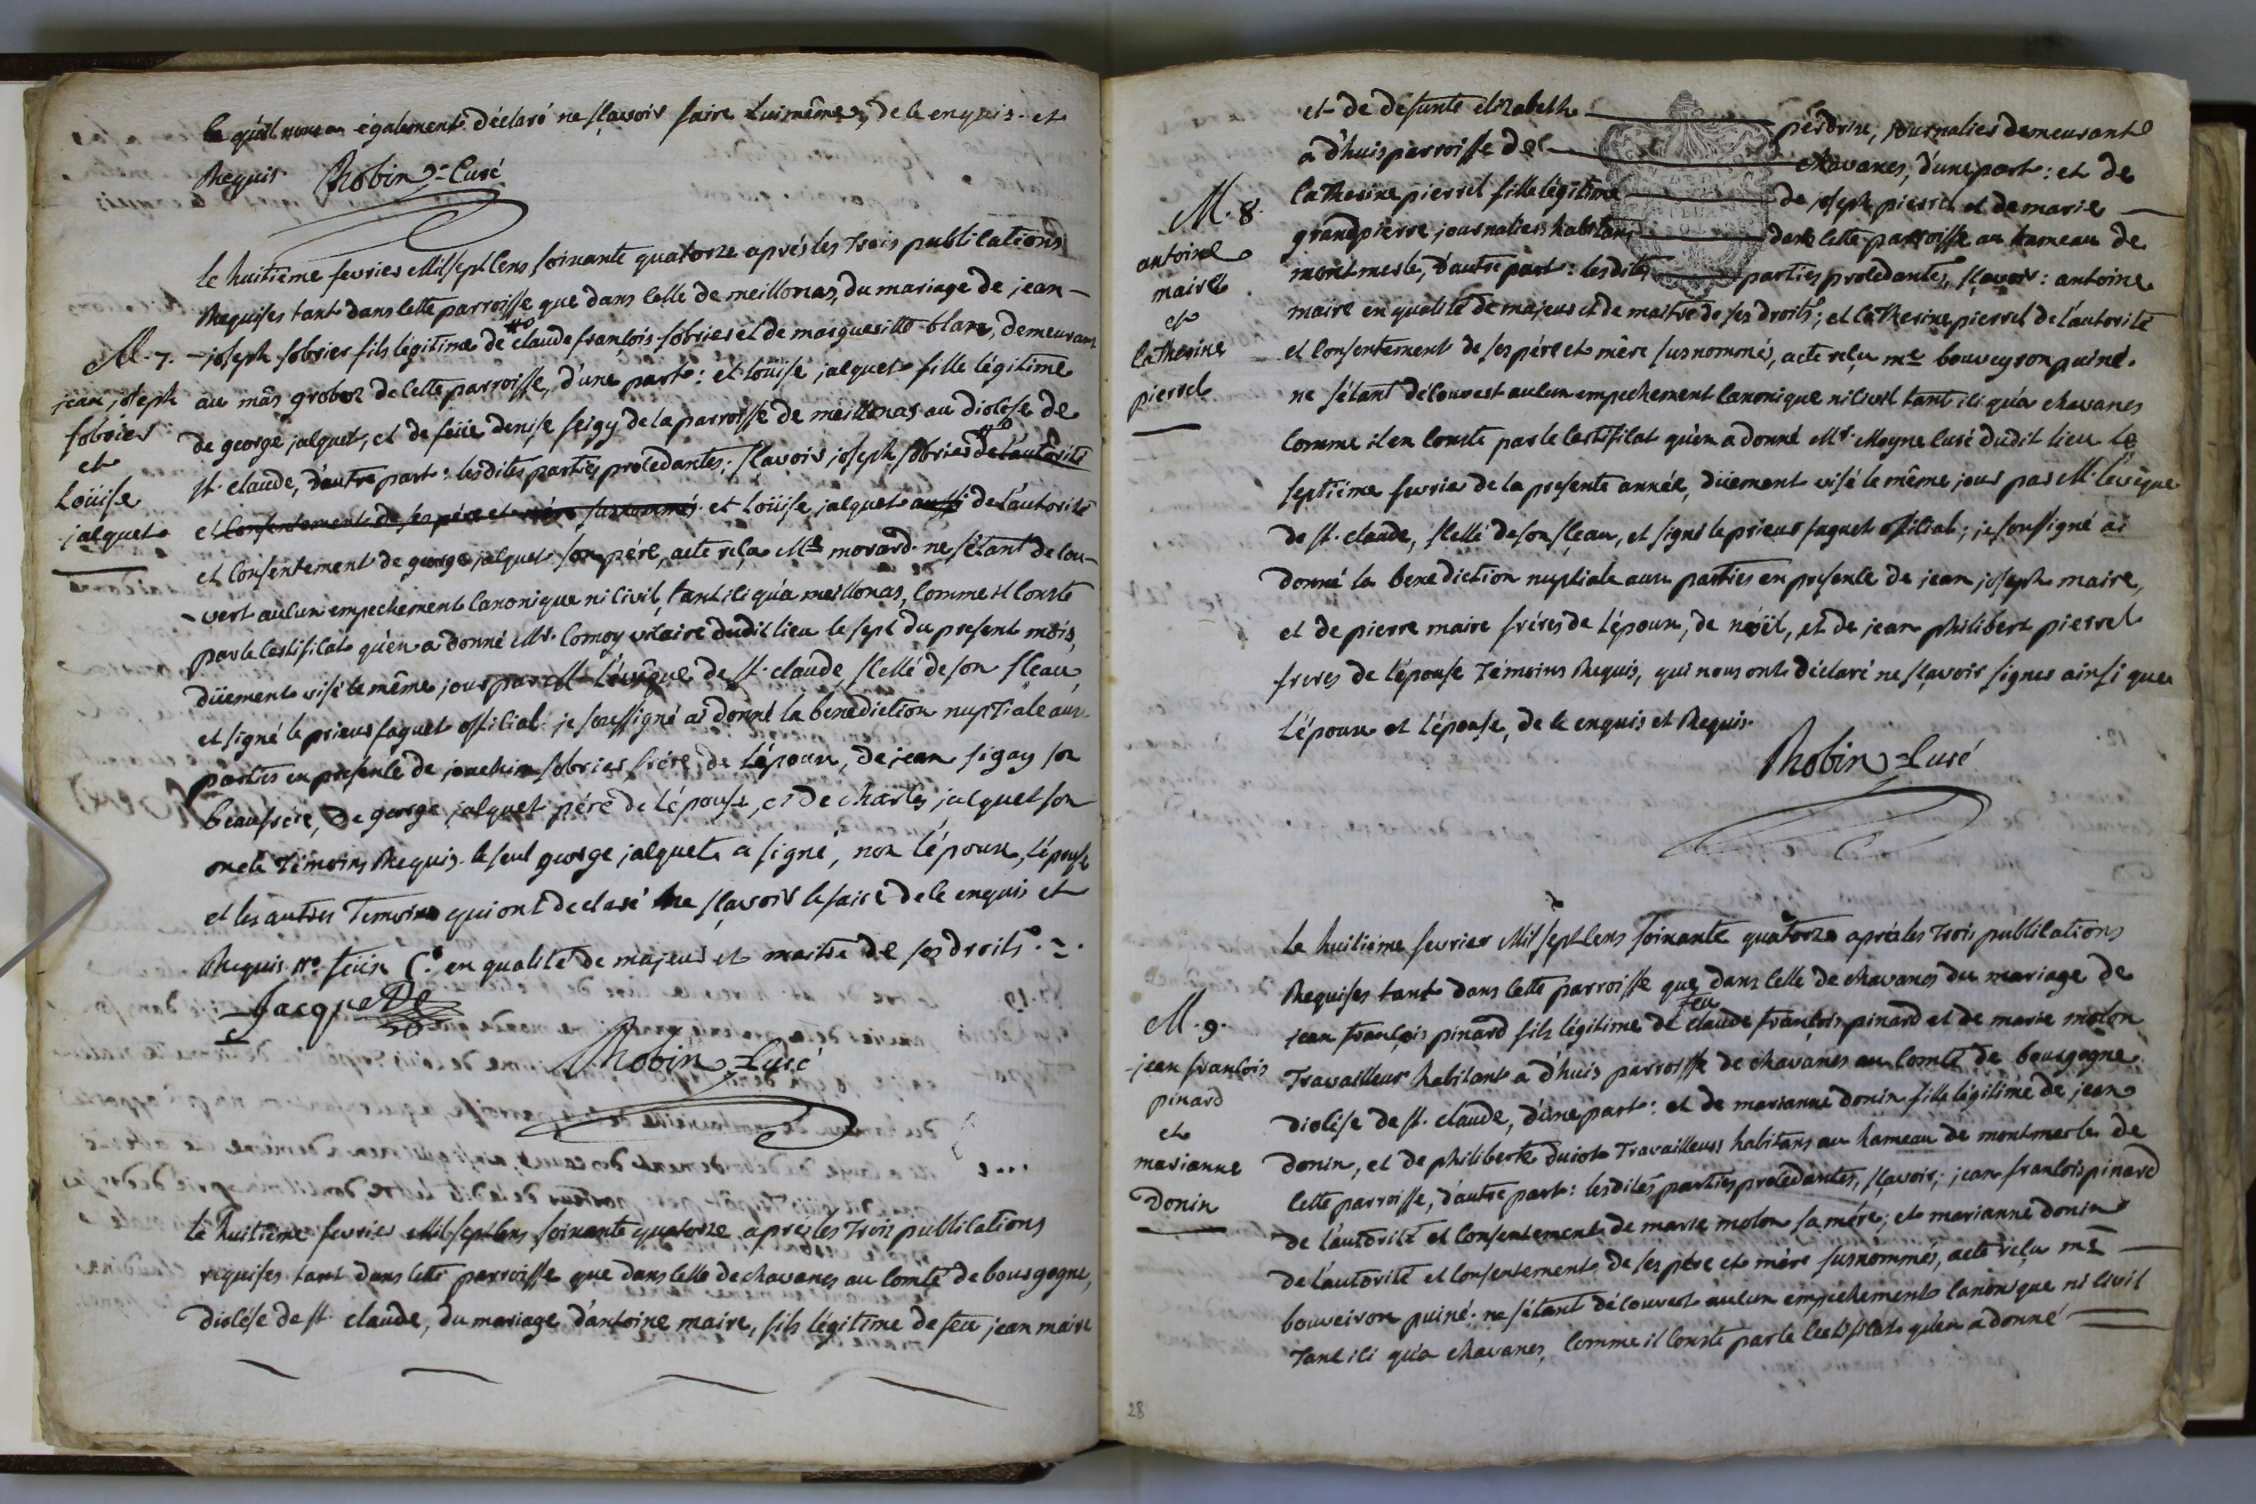 ce qu'il nous a également déclaré ne sçavoir faire lui même, de ce enquis et
Requis. Robin-Curé
le huitième fevrier Mil sept cens soixante quatorze aprés les trois publications
Requises tant dans cette parroisse que dans celle de meillonas, du mariage de jean-
M. 7.
jean joseph
sobrier
et
Loüise
jacquet
joseph sobrier fils légitime de claude françois sobrier et de margueritte blanc, demeurant
au mâs groboz de cette parroisse, d'une part: et loüise jacquet fille légitime
de george jacquet, et de feüe denise feigy de la parroisse de meillonas au diocése de
st. claude, d'autre part: lesdites parties procedantes; sçavoir joseph sobrier de l'autorité
et consentement de ses pére et mére susnommés et Loüise jacquet aussi de l'autorité
et consentement de george jacquet son pére, acte reçu Me morard. ne s'étant decou-
-vert aucun empechement canonique ni civil, tant ici qu'à meillonas, comme il conste
par le certificat qu'en a donné Mr. Comoy vicaire dudit lieu le sept du present mois,
düement visé le même jour par M. l'évêque de st. claude, scellé de son sceau,
et signé le prieur faguet official. je soussigné ai donné la benediction nuptiale aux
parties en presence de joachim sobrier frére de l'époux, de jean figay son
beaufrère, de george jacquet pére de l'épouse, et de charles jacquet son
oncle témoins Requis. le seul george jacquet a signé, non l'époux, l'épouse
et les autres temoins qui ont declaré ne sçavoir le faire de ce enquis et
Requis. en qualité de majeur et maitre de ses droits.
Jacquet
Robin-Curé
le huitième fevrier Mil sept cens soixante quatorze aprés les trois publications
requises tant dans cette parroisse que dans celle de chavanes au comté de bourgogne,
diocése de st. claude, du mariage d'antoine maire, fils légitime de feu jean maire
et de defunte elizabeth perdrix, journalier demeurant
à d'huis parroisse de chavanes, d'une part: et de
M. 8.
antoine
maire
et
catherine
pierrel
catherine pierrel fille légitime de joseph pierrel et de marie
grandpierre journaliers habitans dans cette parroisse au hameau de
montmerle, d'autre part: lesdites parties procedantes, sçavoir: antoine
maire en qualité de majeur et de maitre de ses droits; et catherine pierrel de l'autorité
et consentement de ses pére et mére susnommés, acte reçu me bouveyron puiné.
ne s'étant découvert aucun empechement canonique ni civil tant ici qu'à chavanes
comme il en conste par le certificat qu'en a donné Mr. Moyne curé dudit lieu le
septième fevrier de la presente année, düement visé le même jour par M. l'évêque
de st. claude, scellé de son sceau, et signé le prieur faguet official; je soussigné ai
donné la benediction nuptiale aux parties en presence de jean joseph maire,
et de pierre maire frères de l'époux, de noël, et de jean philibert pierrel
freres de l'épouse témoins Requis, qui nous ont déclaré ne sçavoir signer ainsi que
l'époux et l'épouse, de ce enquis et Requis.
Robin-Curé
le huitième fevrier Mil sept cens soixante quatorze aprés les trois publications
Requises tant dans cette parroisse que dans celle de chavanes du mariage de
M. 9.
jean francois
pinard
et
marianne
Donin
jean françois pinard fils légitime de feu claude françois pinard et de marie molon
travailleur habitant à d'huis parroisse de chavanes au comté de bourgogne
diocése de st. claude, d'une part: et de marianne donin fille légitime de jean
donin, et de philiberte duiot travailleurs habitans au hameau de montmerle de
cette parroisse, d'autre part: lesdites parties procedantes, sçavoir; jean francois pinard
de l'autorité et consentement de marie molon sa mére; et marianne donin
de l'autorité et consentement de ses pére et mére susnommés, acte reçu me
bouveiron puiné. ne s'étant découvert aucun empechement canonique ni civil
tant ici qu'a chavanes, comme il conste par le certificat qu'en a donné
28